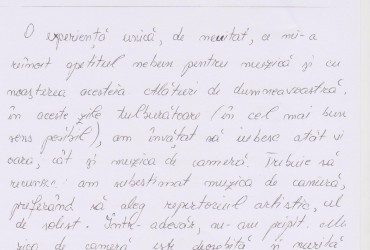 O experiență unică, de neuitat, ce mi-a
stîrnit apetitul nebun pentru muzică și cu
noașterea acesteia alături de dumneavoastră.
în aceste zile tulburătoare (în cel mai bun
sens posibil), am învățat să iubesc atât vi
oara, cât și muzica de cameră. Trebuie să
recunosc: am subestimat muzica de cameră,
preferând să aleg repertoriul artistic, cel
de solist. Într-adevăr, m-am pripit. Mu
zica de cameră este deosebită și merită